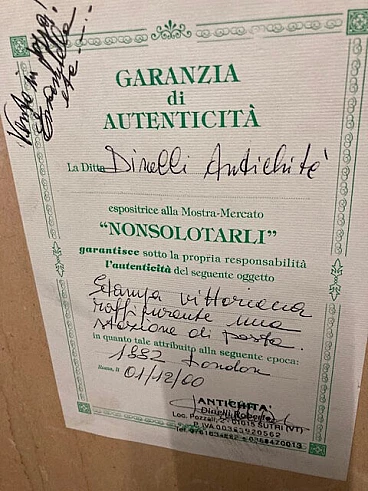 GARANZIA
di
AUTENTICITÀ
La Ditta Dinelli Antichità
espositrice alla Mostra-Mercato
“NONSOLOTARLI”
garantisce sotto la propria responsabilità
l'autenticità del seguente oggetto
Stampa vittoriana
raffigurante una
stazione di posta.
in quanto tale attribuito alla seguente epoca:
1882 London
Roma, li 01/12/00
ANTICHITA'
Dinelli Roberto
Loc. Pozzali, 2 - 01015 SUTRI (VT)